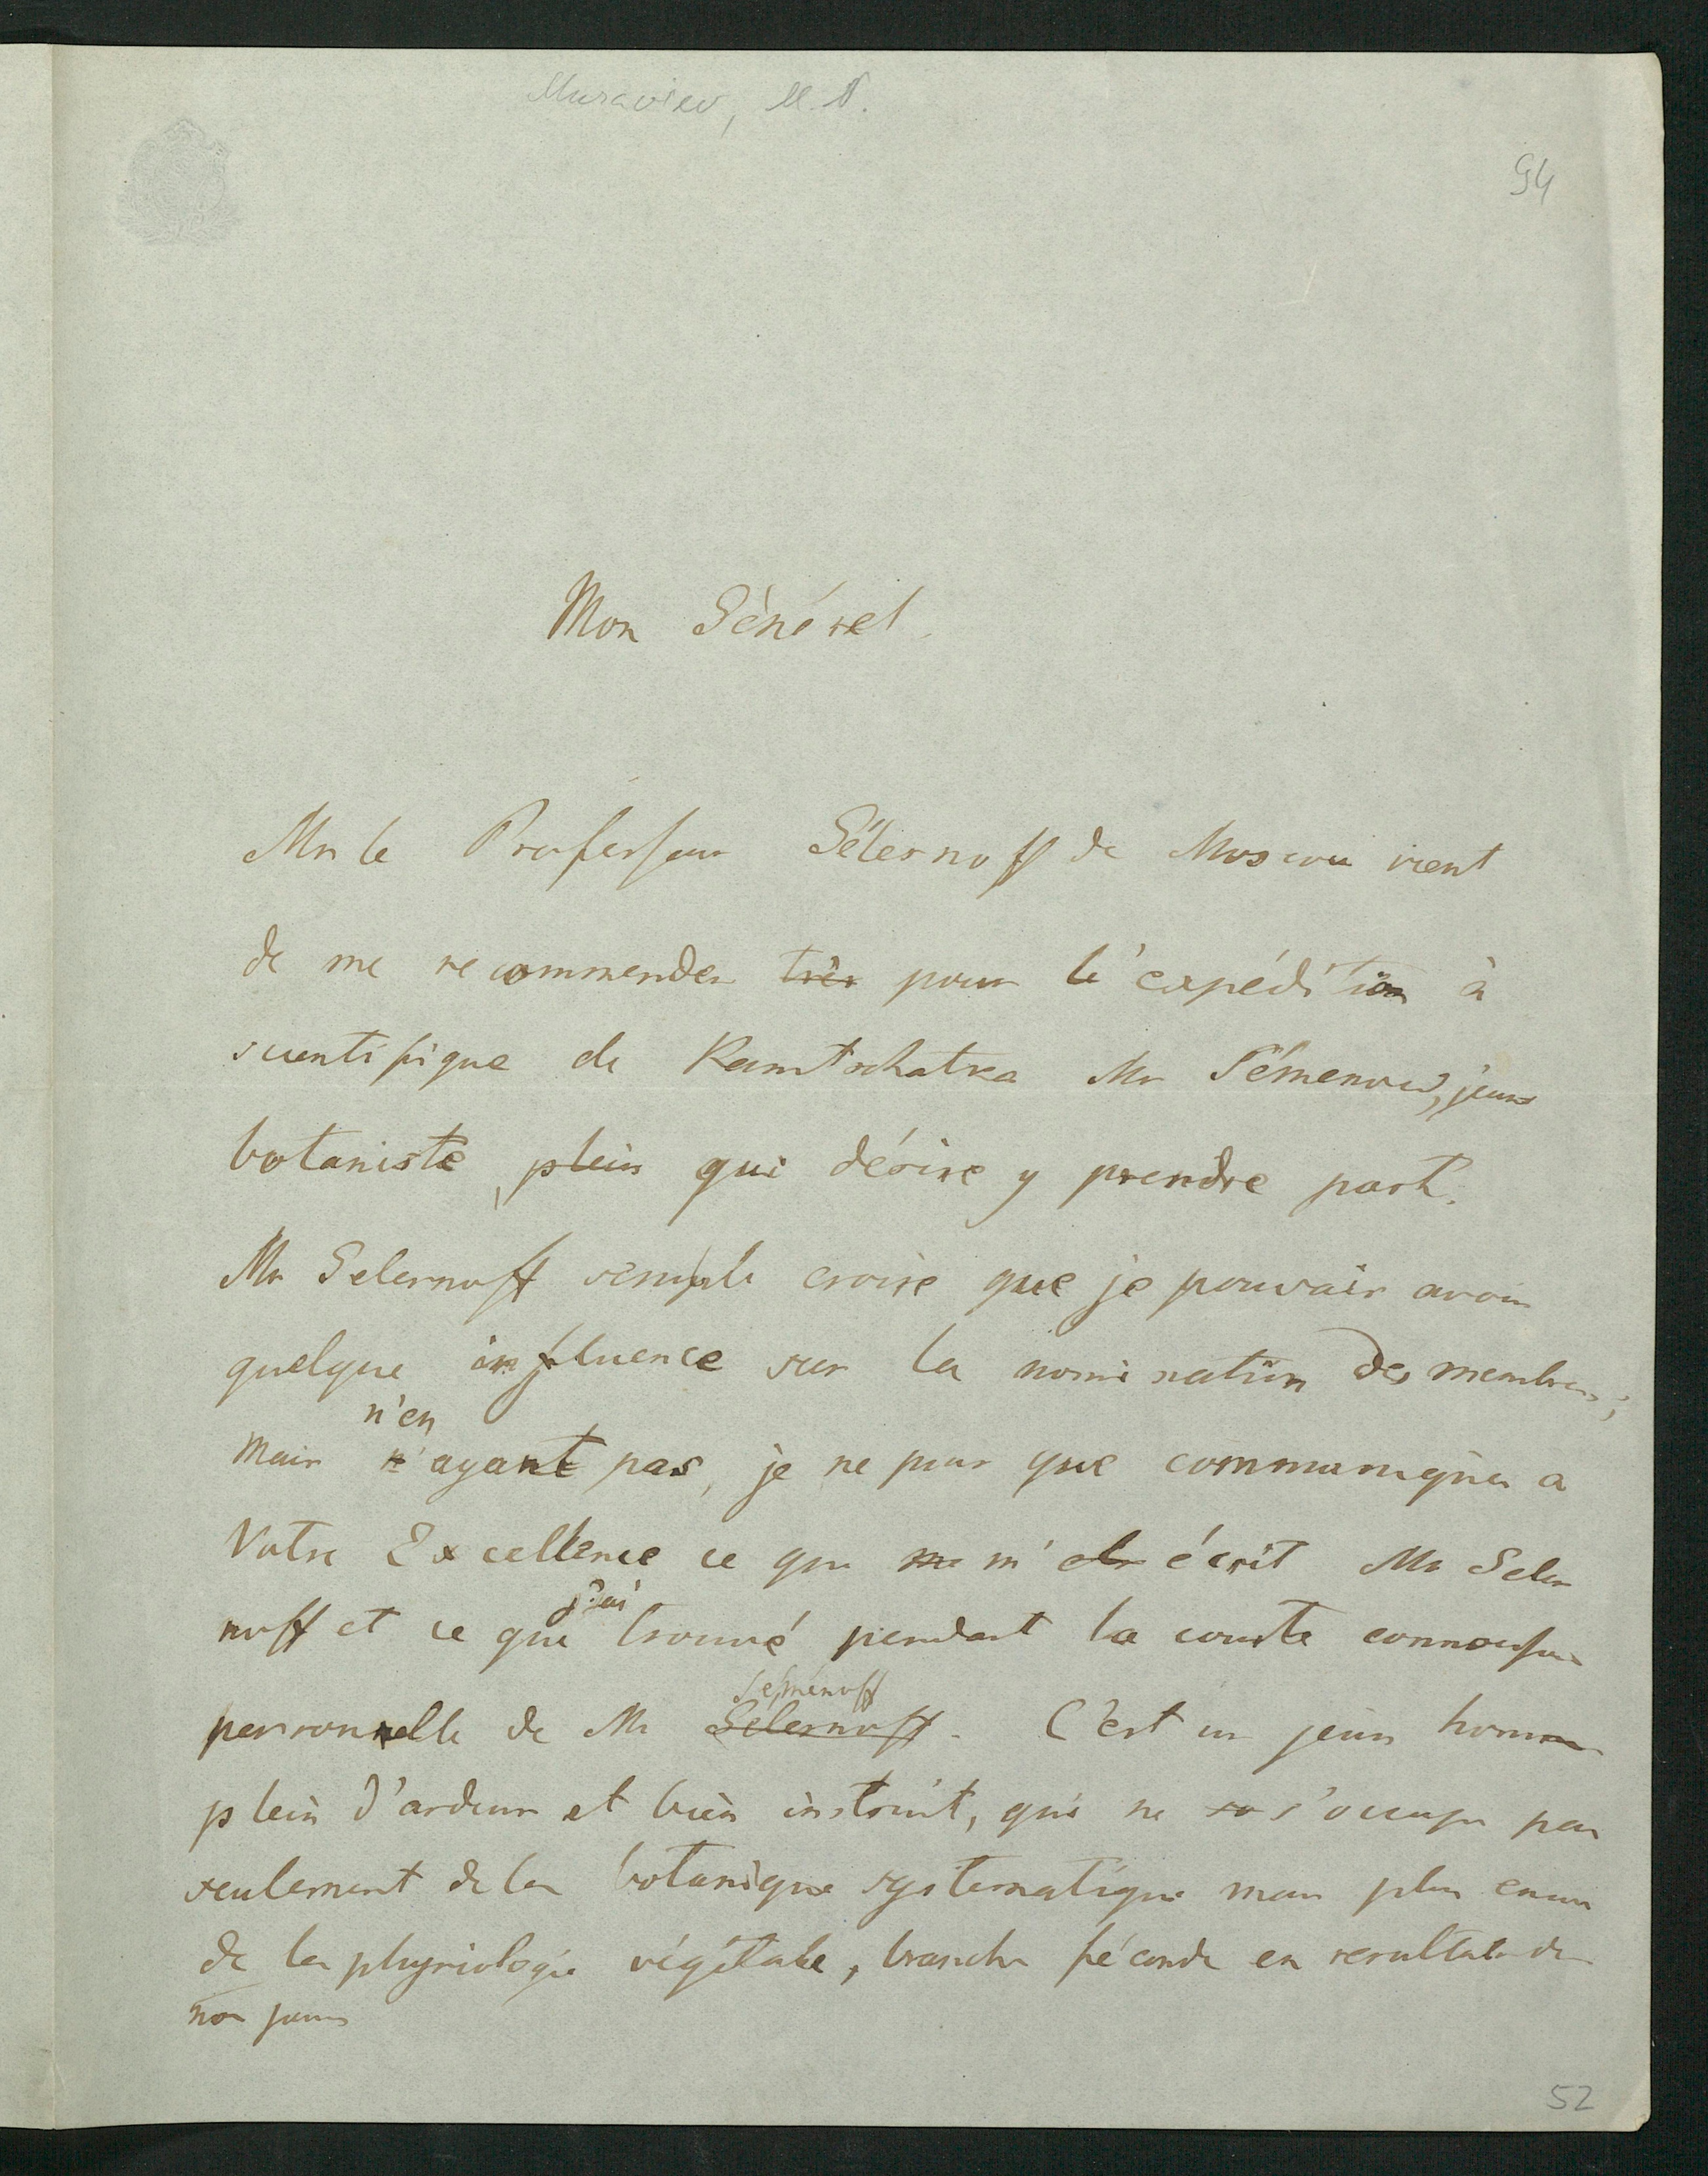 Muraviev, M. N.
94
Mon Général.
Mr le Professeur Sélesnoff de Moscou vient
de me recommender très pour l'expédition à
scientifique de Kamtschatka Mr Sémenow, jeune
botaniste, plein qui désire y prendre part.
Mr Selesnoff semble croire que je pouvais avoir
quelque influence sur la nomination des membres;
n'en
mais n'ayant pas, je ne puis que communiquer a
Votre Excellence ce que me m' écrit Mr Seles
j'ai
noff et ce que trouvé pendant la courte connaissance
Semenoff
personnelle de Mr Selesnoff. C'est un jeune homme
plein d'ardeur et bien instruit, qui ne s'occupe pas
seulement de la botanique systematique mais plus encore
de la physiologie végétale, branche féconde en resultats de
nos jours
52